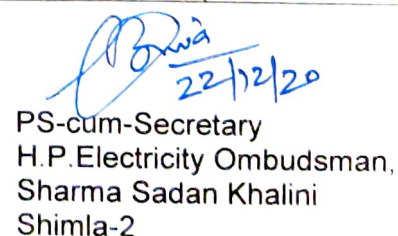 22/12/20
PS-cum-Secretary
H.P.Electricity Ombudsman,
Sharma Sadan Khalini
Shimla-2